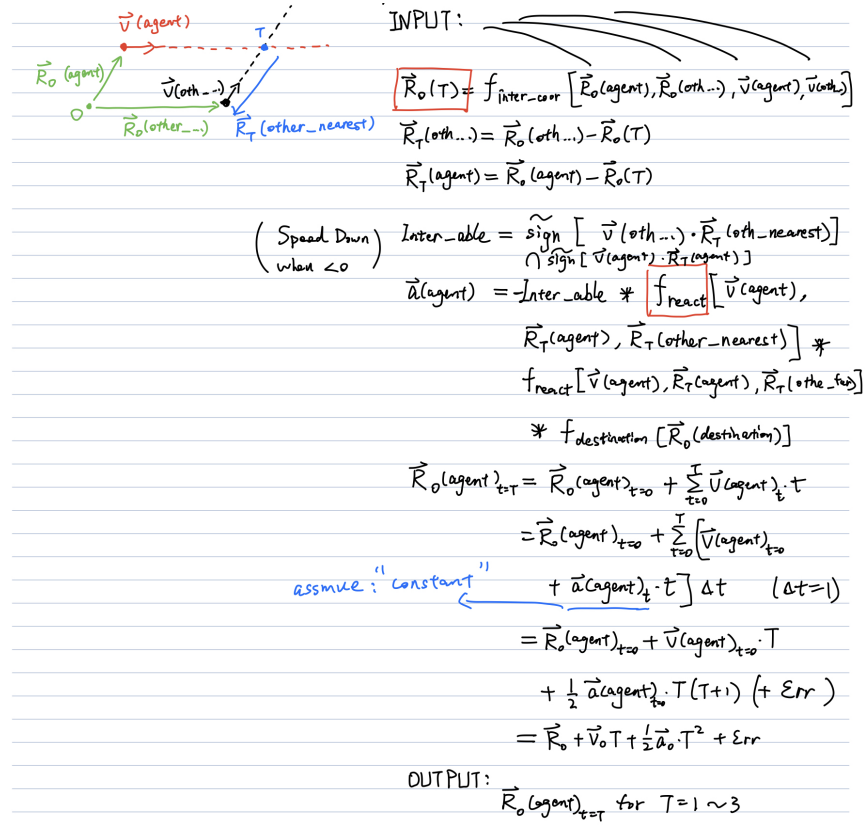 V⃗(agent)
T
R⃗₀(agent)
V⃗(oth_...)
O
R⃗₀(other_...)
R⃗_T(other_nearest)
INPUT:
R⃗₀(T) = f_inter_coor [R⃗₀(agent), R⃗₀(oth...), V⃗(agent), V⃗(oth..)]
R⃗_T(oth...) = R⃗₀(oth...) − R⃗₀(T)
R⃗_T(agent) = R⃗₀(agent) − R⃗₀(T)
(Speed Down when <0) Inter_able = s̃ign [V⃗(oth...)·R⃗_T(oth_nearest)]
∩ s̃ign [V⃗(agent)·R⃗_T(agent)]
a⃗(agent) = -Inter_able * f_react [V⃗(agent),
R⃗_T(agent), R⃗_T(other_nearest)] *
f_react [V⃗(agent), R⃗_T(agent), R⃗_T(othe_far)]
* f_destination [R⃗₀(destination)]
R⃗₀(agent)_t=T = R⃗₀(agent)_t=0 + Σ_{t=0}^{T} V⃗(agent)_t · t
= R⃗₀(agent)_t=0 + Σ_{t=0}^{T} [V⃗(agent)_t=0
assmue: "constant" + a⃗(agent)_t · t] Δt (Δt=1)
= R⃗₀(agent)_t=0 + V⃗(agent)_t=0 · T
+ 1/2 a⃗(agent)_t=0 · T(T+1) (+ Err)
= R⃗₀ + V⃗₀T + 1/2 a⃗₀·T² + Err
OUTPUT:
R⃗₀(agent)_t=T for T=1~3